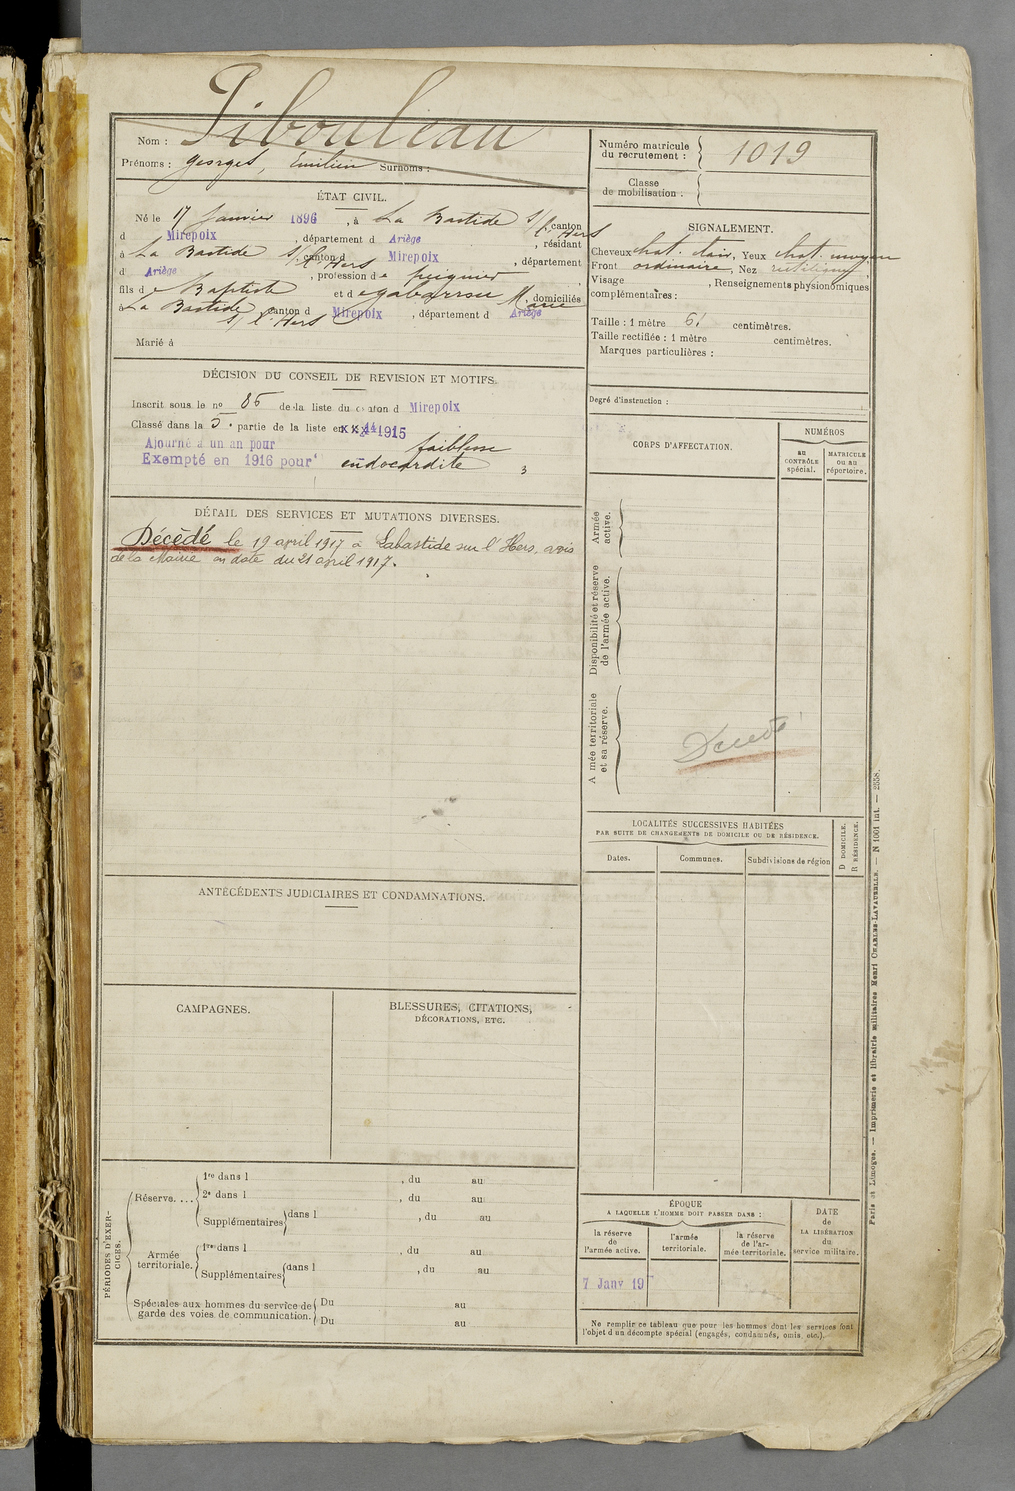 Nom : Pibouleau
Prénoms : Georges, Emilien Surnoms :
Numéro matricule du recrutement : 1019
Classe de mobilisation :
ÉTAT CIVIL.
Né le 17 Janvier 1896, à La Bastide s/ l'Hers canton
d Mirepoix, département d Ariège, résidant
à La Bastide s/ l'Hers canton d Mirepoix, département
d Ariège, profession de peignier
fils de Baptiste et de Gabarrou Marie, domiciliés
à La Bastide s/ l'Hers canton d Mirepoix, département d Ariège
Marié à
SIGNALEMENT.
Cheveux chat. clair, Yeux chat. moyen
Front ordinaire, Nez rectiligne
Visage , Renseignements physionomiques
complémentaires :
Taille : 1 mètre 61 centimètres.
Taille rectifiée : 1 mètre centimètres.
Marques particulières :
Degré d'instruction :
DÉCISION DU CONSEIL DE REVISION ET MOTIFS.
Inscrit sous le no 86 de la liste du canton d Mirepoix
Classé dans la 5e partie de la liste en 1915
Ajourné à un an pour faiblesse
Exempté en 1916 pour endocardite
DÉTAIL DES SERVICES ET MUTATIONS DIVERSES.
Décédé le 19 april 1917 à Labastide sur l'Hers, avis
de la Mairie en date du 21 april 1917.
CORPS D'AFFECTATION.
NUMÉROS
au CONTRÔLE spécial.
MATRICULE ou au répertoire.
Armée active.
Disponibilité et réserve de l'armée active.
A mée territoriale et sa réserve.
Décédé
LOCALITÉS SUCCESSIVES HABITÉES
PAR SUITE DE CHANGEMENTS DE DOMICILE OU DE RÉSIDENCE.
Dates.
Communes.
Subdivisions de région
D DOMICILE.
R RÉSIDENCE.
ANTÉCÉDENTS JUDICIAIRES ET CONDAMNATIONS.
CAMPAGNES.
BLESSURES, CITATIONS,
DÉCORATIONS, ETC.
PÉRIODES D'EXERCICES.
Réserve....
1re dans l , du au
2e dans l , du au
Supplémentaires dans l , du au
Armée territoriale.
1re dans l , du au
Supplémentaires dans l , du au
Spéciales aux hommes du service de garde des voies de communication.
Du au
Du au
ÉPOQUE
A LAQUELLE L'HOMME DOIT PASSER DANS :
la réserve de l'armée active.
l'armée territoriale.
la réserve de l'armée territoriale.
DATE de LA LIBÉRATION du service militaire.
7 Janv 19
Ne remplir ce tableau que pour les hommes dont les services font
l'objet d un décompte spécial (engagés, condamnés, omis, etc.).
Paris et Limoges. — Imprimerie et librairie militaires Henri CHARLES-LAVAUZELLE. — N 1001 int. — 2558.